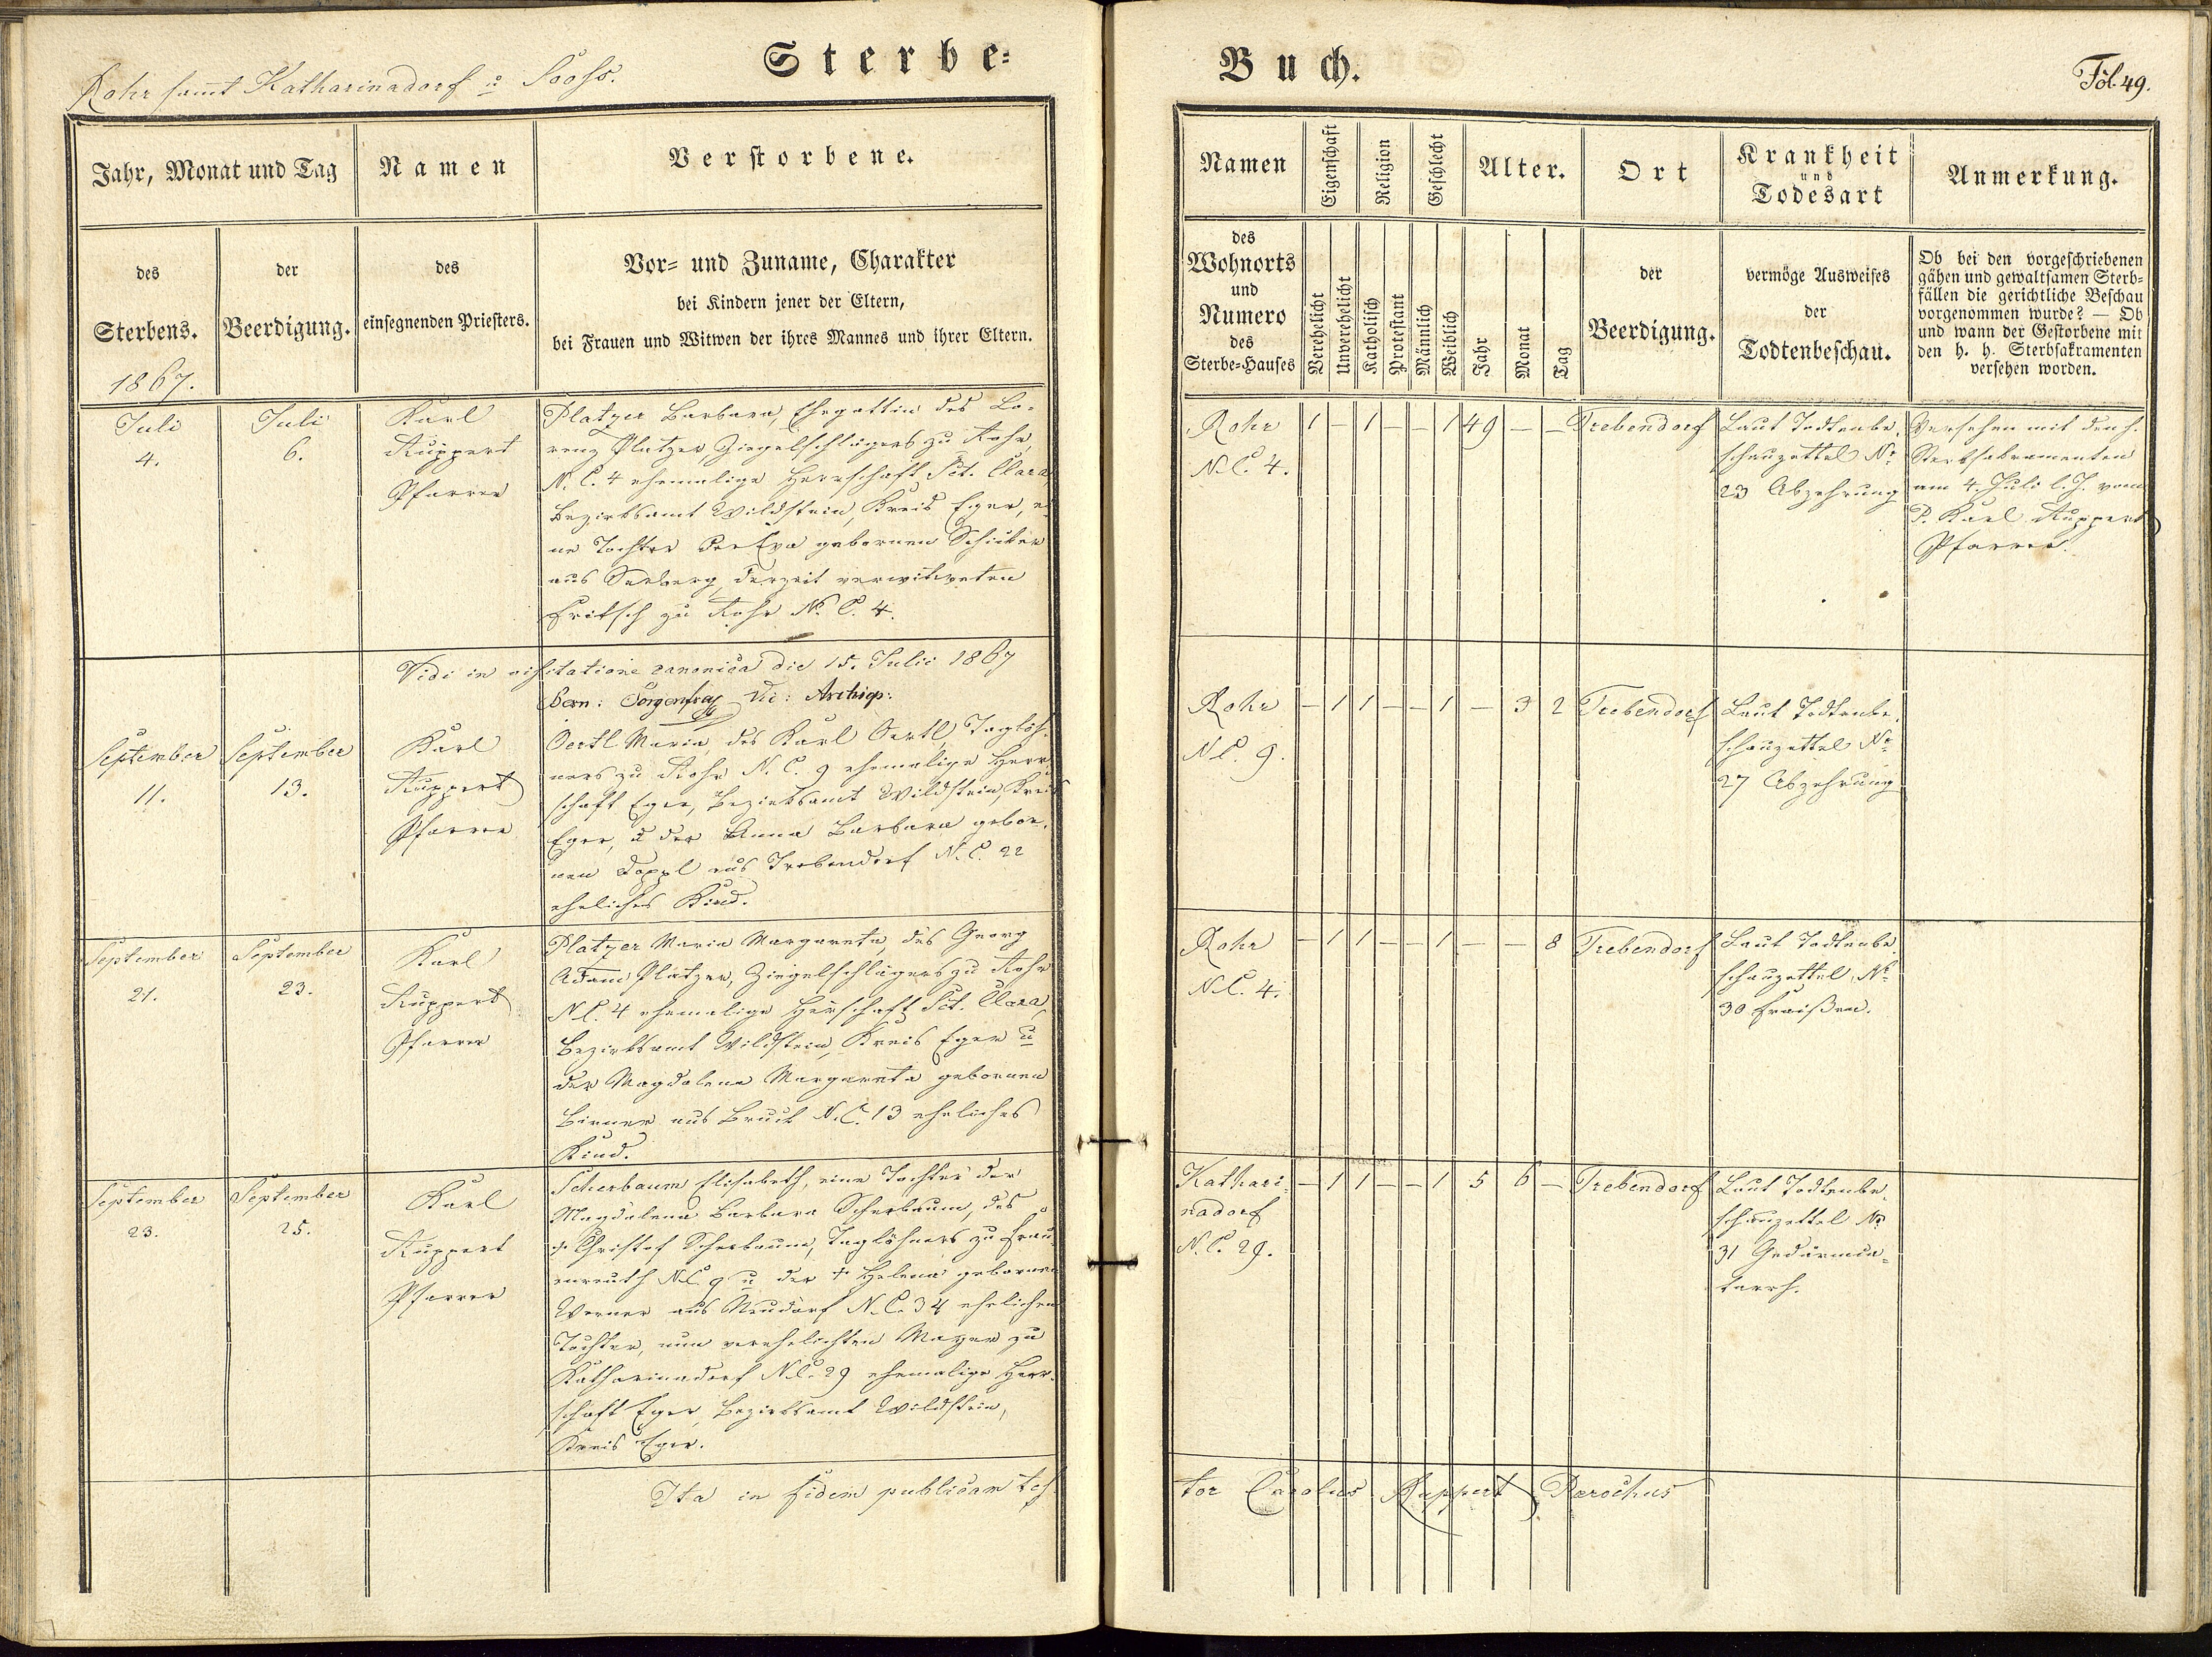 Sterbe-
Rohr samt Katharinadorf u Sooß.
Jahr, Monat und Tag
Namen
Verstorbene.
des
Sterbens.
1867.
der
Beerdigung.
des
einsegnenden Priesters.
Vor- und Zuname, Charakter
bei Kindern jener der Eltern,
bei Frauen und Witwen der ihres Mannes und ihrer Eltern.
Juli
4.
Juli
6.
Karl
Ruppert
Pfarrer
Platzer Barbara, Ehegattin des Lo-
renz Platzer, Ziegelschlägers zu Rohr,
N. C. 4 ehemalige Herrschaft Sct. Clara
Bezirksamt Wildstein, Kreis Eger, ei
ne Tochter der Eva gebornen Schicker
aus Seeberg, derzeit verwitweten
Fritsch zu Rohr N. C. 4.
Vidi in visitatione canonica die 15. Julii 1867
Bern: Sorgenfrey Vic: Archiep:
September
11.
September
13.
Karl
Ruppert
Pfarrer
Oertl Maria, des Karl Oertl, Taglöh-
ners zu Rohr N. C. 9 ehemalige Herr-
schaft Eger, Bezirksamt Wildstein, Kreis
Eger, u der Anna Barbara gebor-
nen Doppl aus Trebendorf N. C. 22
eheliches Kind.
September
21.
September
23.
Karl
Ruppert
Pfarrer
Platzer Maria Margareta, des Georg
Adam Platzer, Ziegelschlägers zu Rohr
N C. 4 ehemalige Herschaft Sct. Clara,
Bezirksamt Wildstein, Kreis Eger u
der Magdalena Margareta gebornen
Birner aus Bruck N. C. 13 eheliches
Kind.
September
23.
September
25.
Karl
Ruppert
Pfarrer
Scherbaum Elisabeth, eine Tochter der
Magdalena Barbara Scherbaum, des
† Christof Scherbaum, Taglöhners zu Frau-
enreuth N C 9 u der † Helena gebornen
Werner aus Neudorf N. C. 34 ehelichen
Tochter, nun verehelichten Mayer zu
Katharinadorf N. C. 29 ehemalige Herr-
schaft Eger, Bezirksamt Wildstein,
Kreis Eger.
Ita in fidem publicam tes-
Buch.
Fol. 49.
Namen
Eigenschaft
Religion
Geschlecht
Alter.
Ort
Krankheit
und
Todesart
Anmerkung.
des
Wohnorts
und
Numero
des
Sterbe-Hauses
Verehelicht
Unverehelicht
Katholisch
Protestant
Männlich
Weiblich
Jahr
Monat
Tag
der
Beerdigung.
vermöge Ausweises
der
Todtenbeschau.
Ob bei den vorgeschriebenen
gähen und gewaltsamen Sterb-
fällen die gerichtliche Beschau
vorgenommen wurde? — Ob
und wann der Gestorbene mit
den h. h. Sterbsakramenten
versehen worden.
Rohr
N. C. 4.
1 – 1 – – 1 49 – –
Trebendorf
Laut Todtenbe-
schauzettel No
23 Abzehrung
Versehen mit den h.
Sterbsakramenten
am 4. Juli l. J. vom
P. Karl Ruppert
Pfarrer.
Rohr
N C. 9.
– 1 1 – – 1 – 3 2
Trebendorf
Laut Todtenbe-
schauzettel No
27 Abzehrung
Rohr
N. C. 4.
– 1 1 – – 1 – – 8
Trebendorf
Laut Todtenbe-
schauzettel No
30 Fraißen.
Kathari-
nadorf
N. C. 29.
– 1 1 – – 1 5 6 –
Trebendorf
Laut Todtenbe-
schauzettel No
31 Gedärmka-
tarrh.
tor Carolus Ruppert Parochus